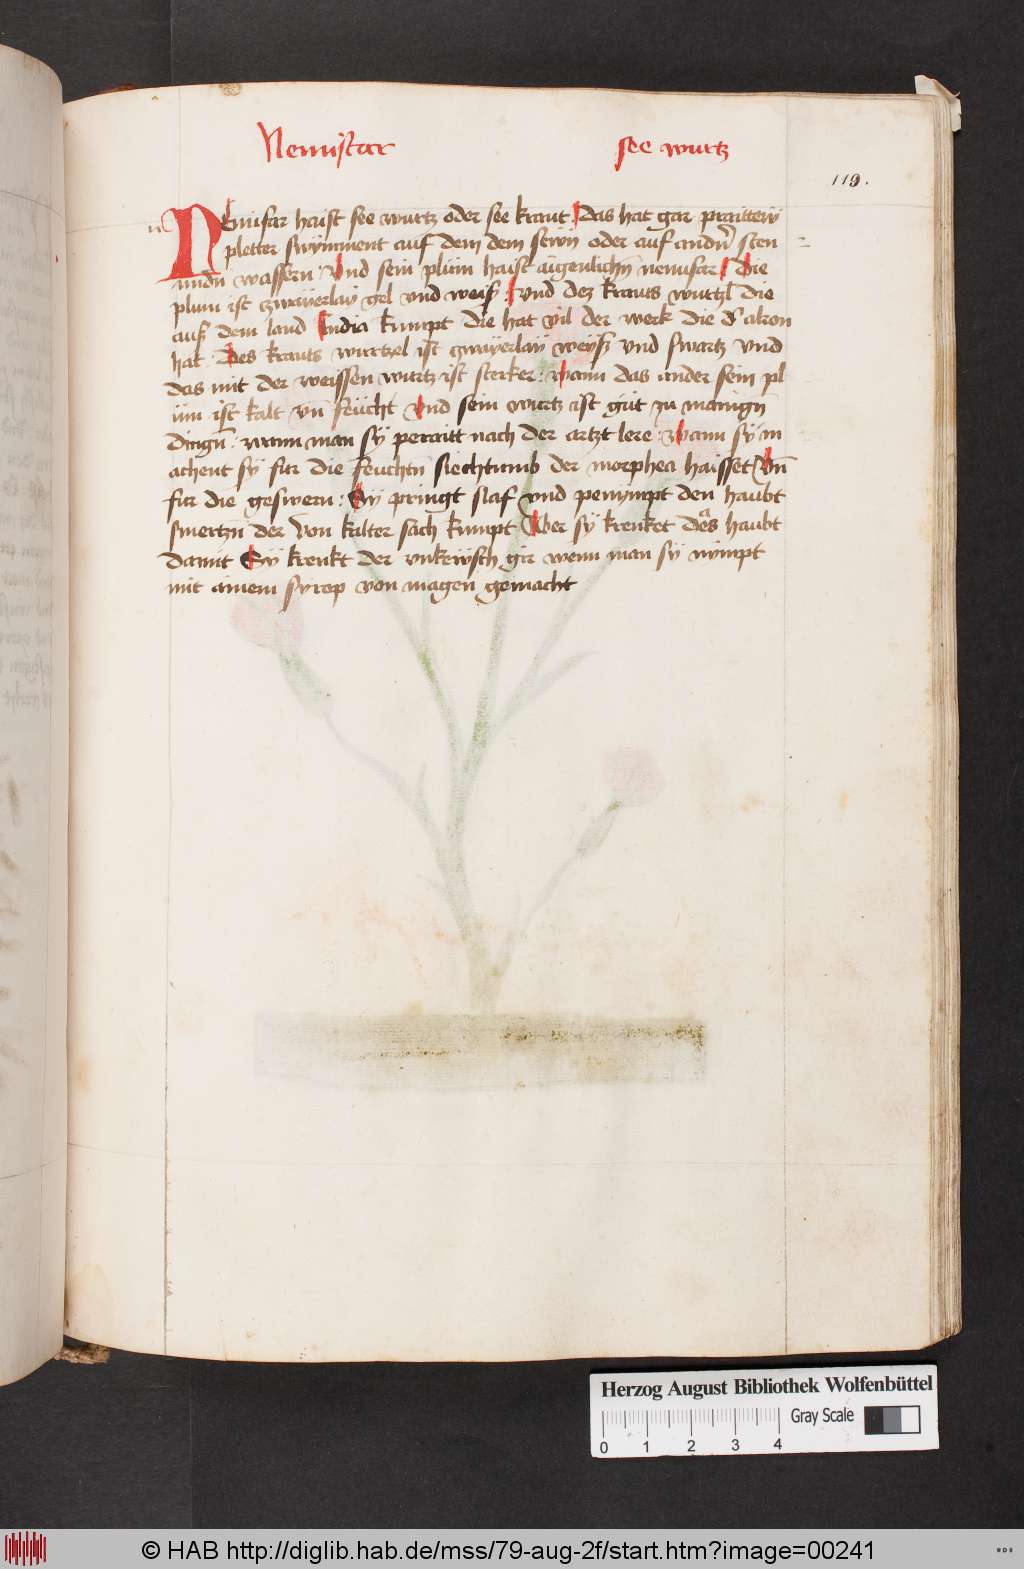 Nemifar see wurtz
119.
n
NEnufar haist see wurtz oder see kraut Das hat gar praittew
pletter swymment auf dem dem sewn oder auf andn̄ sten
undn̄ wassern Vnd sein plüm haist aigenlichn̄ nenufar Die
plum ist zwayerlay gel vnd weiß vnd dez krauts wurtzl die
auß dem land India kumpt die hat vil der werk die d'alron
hat Des krauts wurtzel ist zwayerlay weyß vnd swartz vnd
das mit der weissen wurtz ist sterker wann das ander sein pl
üm ist kalt vn̄ feücht Vnd sein wurtz ist güt zu manign̄
dingn̄ wann man sy peraitt nach der artzt lere Wann sy m
achent sy für die feuchtn̄ siechtumb der morphea haisset Vn̄
fur die geswern Sy pringt slaf vnd penympt den haubt
smertzn̄ der von kalter sach kumpt Aber sy krenket das haubt
damit Sy krenkt der vnkewsch gir wenn man sy nympt
mit ainem syrop von magen gemacht
Herzog August Bibliothek Wolfenbüttel
Gray Scale
0 1 2 3 4
© HAB http://diglib.hab.de/mss/79-aug-2f/start.htm?image=00241